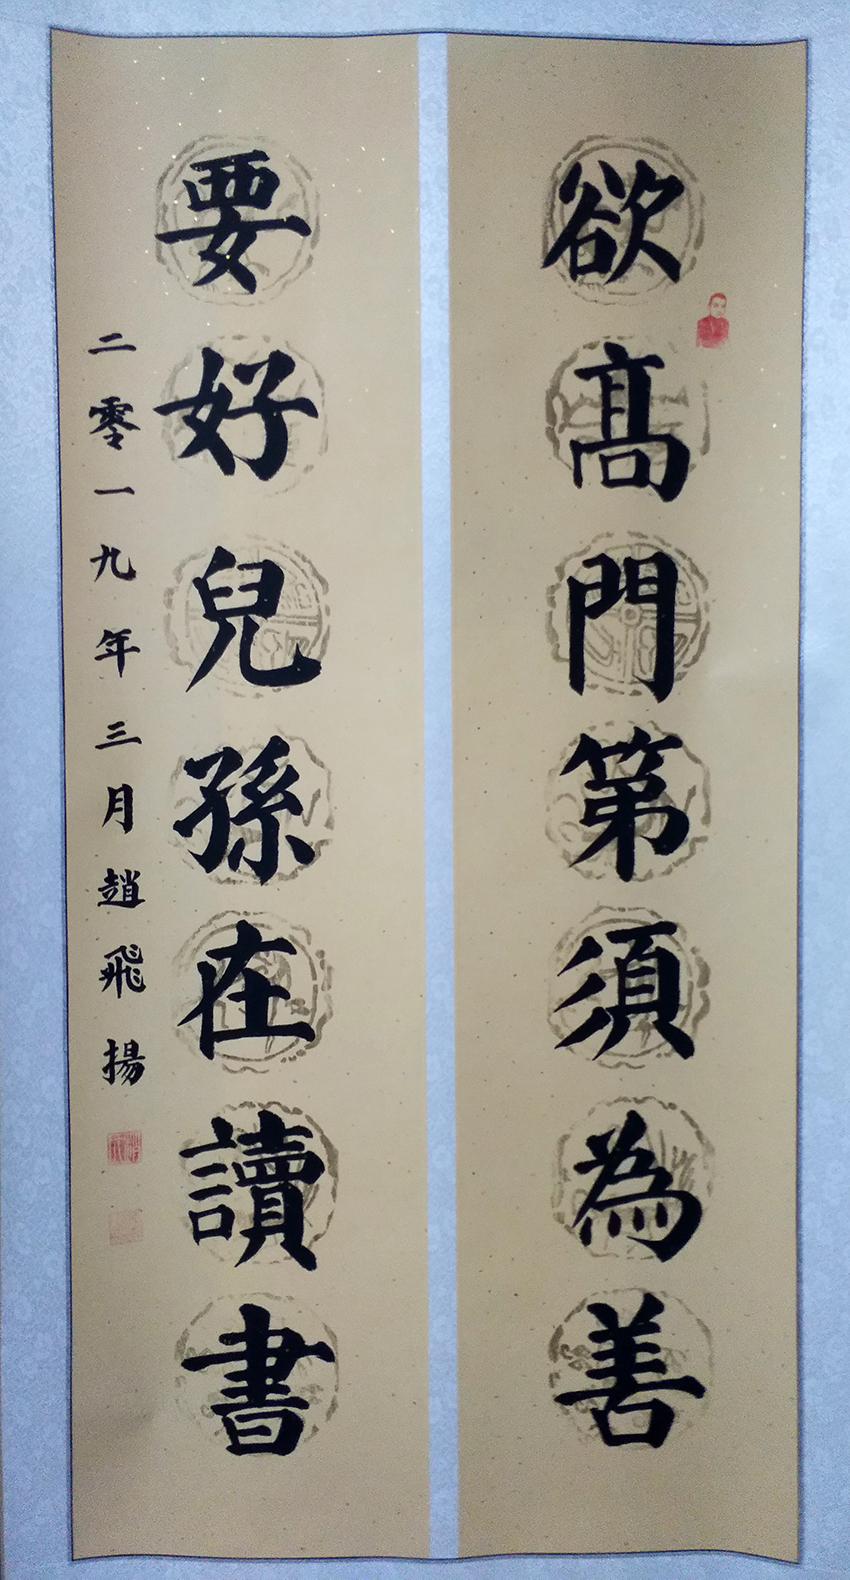 欲高門第須為善
要好兒孫在讀書
二零一九年三月趙飛揚